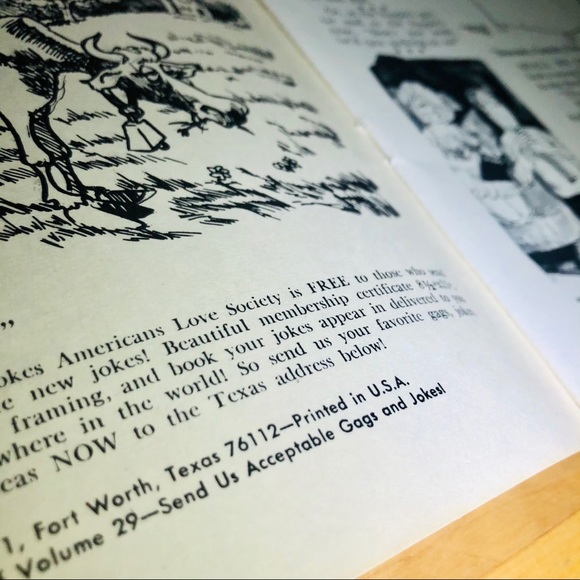 ”
okes Americans Love Society is FREE to those who send
new jokes! Beautiful membership certificate
framing, and book your jokes appear in delivered to you
where in the world! So send us your favorite gags, jokes
eas NOW to the Texas address below!
1, Fort Worth, Texas 76112—Printed in U.S.A.
Volume 29—Send Us Acceptable Gags and Jokes!